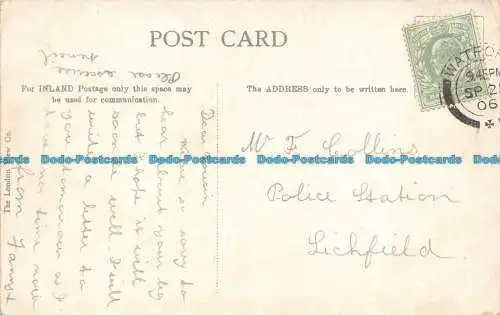 POST CARD
Please excuse
pencil
For INLAND Postage only this space may
be used for communication.
The ADDRESS only to be written here.
Dear
Were so sorry to
hear about your leg
but hope it will
soon be well. I will
write a letter to
you tomorrow as I
have no time now
from Fanny
The London View Co.
Mr F. Collins
Police Station
Lichfield
WATFO
9.45PM
SP 2
06
Dodo-Postcards Dodo-Postcards Dodo-Postcards Dodo-Postcards Dodo-Postcards
Dodo-Postcards Dodo-Postcards Dodo-Postcards Dodo-Postcards Dodo-Postcards